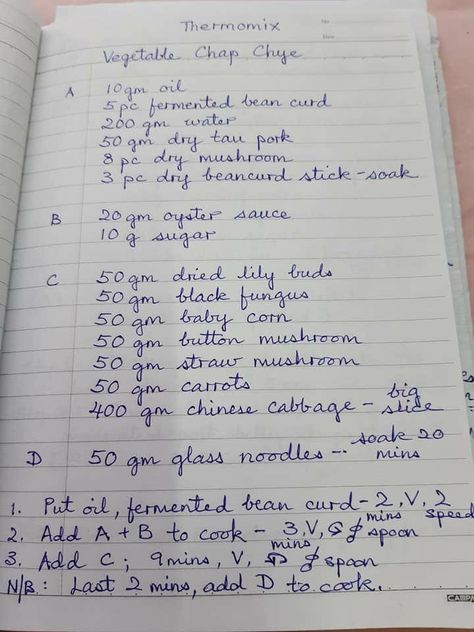 Thermomix
No
Date
Vegetable Chap Chye
A 10 gm oil
5 pc fermented bean curd
200 gm water
50 gm dry tau pork
8 pc dry mushroom
3 pc dry beancurd stick - soak
B 20 gm oyster sauce
10 g sugar
C 50 gm dried lily buds
50 gm black fungus
50 gm baby corn
50 gm button mushroom
50 gm straw mushroom
50 gm carrots
400 gm chinese cabbage - big slide
D 50 gm glass noodles -- soak 20 mins
1. Put oil, fermented bean curd - 2 mins, V, 2 speed
2. Add A + B to cook - 3 mins, V, spoon
3. Add C; 9 mins, V, spoon
N/B: Last 2 mins, add D to cook.